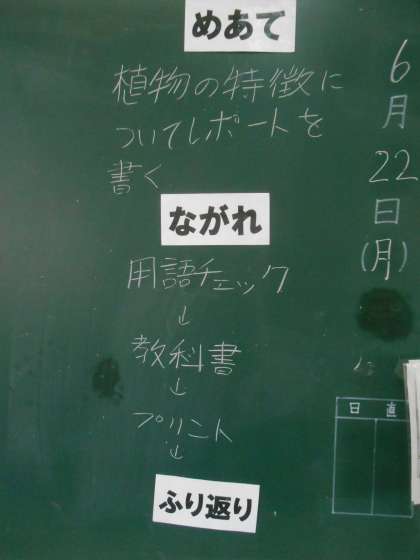 めあて
植物の特徴に
ついてレポートを
書く
ながれ
用語チェック
↓
教科書
↓
プリント
↓
ふり返り
6
月
22
日
(月)
日直